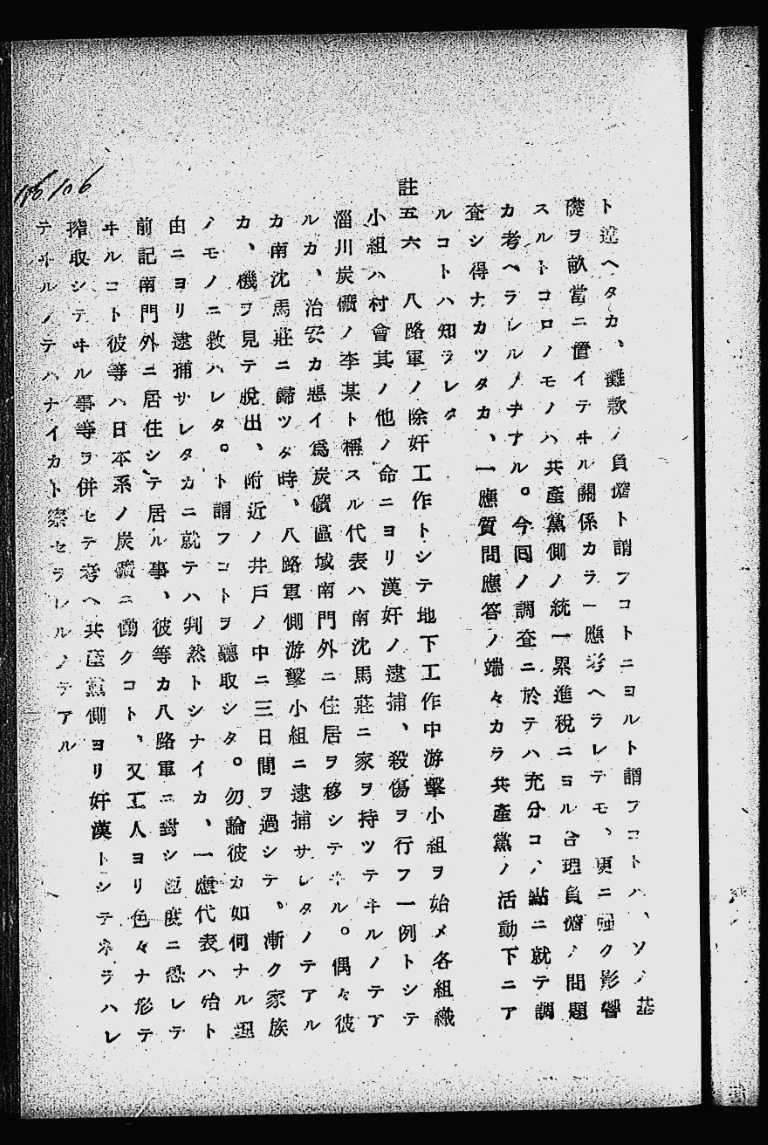 ト述ヘタカ、攤款ノ負擔ト謂フコトニヨルト謂フコトハ、ソノ基
礎ヲ畝當ニ置イテヰル關係カラ一應考ヘラレテモ、更ニ強ク影響
スルトコロノモノハ共產黨側ノ統一累進稅ニヨル合理負擔ノ問題
カ考ヘラレルノテアル。今囘ノ調查ニ於テハ充分コノ點ニ就テ調
査シ得ナカツタカ、一應質問應答ノ端々カラ共產黨ノ活動下ニア
ルコトハ知ラレタ
註五六 八路軍ノ除奸工作トシテ地下工作中游擊小組ヲ始メ各組織
小組ハ村會其ノ他ノ命ニヨリ漢奸ノ逮捕、殺傷ヲ行フ一例トシテ
淄川炭礦ノ李某ト稱スル代表ハ南沈馬莊ニ家ヲ持ツテヰルノテア
ルカ、治安カ惡イ爲炭礦區域南門外ニ住居ヲ移シテヰル。偶々彼
カ南沈馬莊ニ歸ツタ時、八路軍側游擊小組ニ逮捕サレタノテアル
カ、機ヲ見テ脫出、附近ノ井戶ノ中ニ三日間ヲ過シテ、漸ク家族
ノモノニ救ハレタ。ト謂フコトヲ聽取シタ。勿論彼カ如何ナル理
由ニヨリ逮捕サレタカニ就テハ判然トシナイカ、一應代表ハ殆ト
前記南門外ニ居住シテ居ル事、彼等カ八路軍ニ對シ極度ニ恐レテ
ヰルコト彼等ハ日本系ノ炭礦ニ働クコト、又工人ヨリ色々ナ形テ
搾取シテヰル事等ヲ併セテ考ヘ共產黨側ヨリ奸漢トシテネラハレ
テヰルノテハナイカト察セラレルノテアル
106